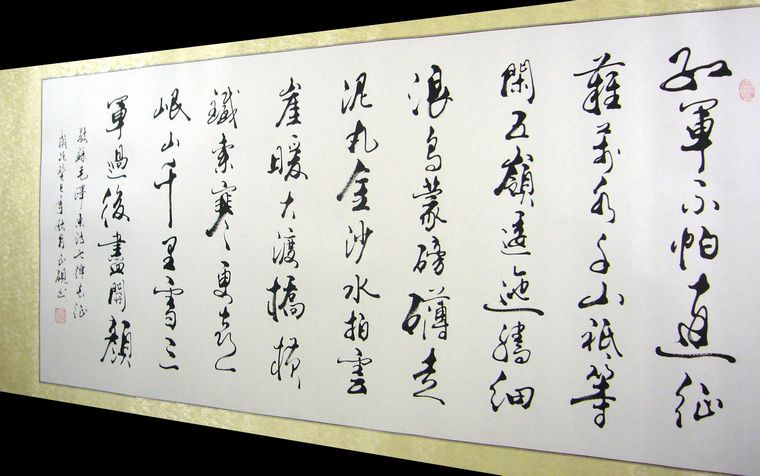 紅軍不怕遠征
難萬水千山祗等
閑五嶺逶迤騰細
浪烏蒙磅礴走
泥丸金沙水拍雲
崖暖大渡橋橫
鐵索寒更喜
岷山千里雪三
軍過後盡開顏
敬錄毛澤東詩七律長征
歲次癸巳年秋月